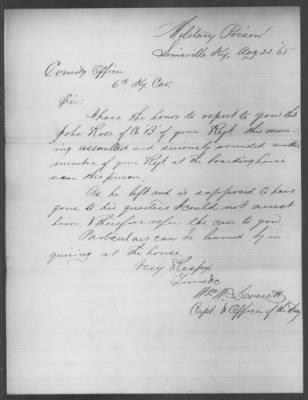 Military Prison
Louisville Ky, Aug 22 '65
Comdg Officer
6th Ky Cav.
Sir:
I have the honor to report to you that
John Rose of Co B of your Regt this morn
ing assaulted and seriously wounded another
member of your Regt at the boarding house
near this prison.
As he left and is supposed to have
gone to his quarters I could not arrest
him, & therefore refer the case to you
Particulars can be learned by in
quiring at the house.
Very Respy
Yours &c
Wm W.
Capt. & Officer of the Day